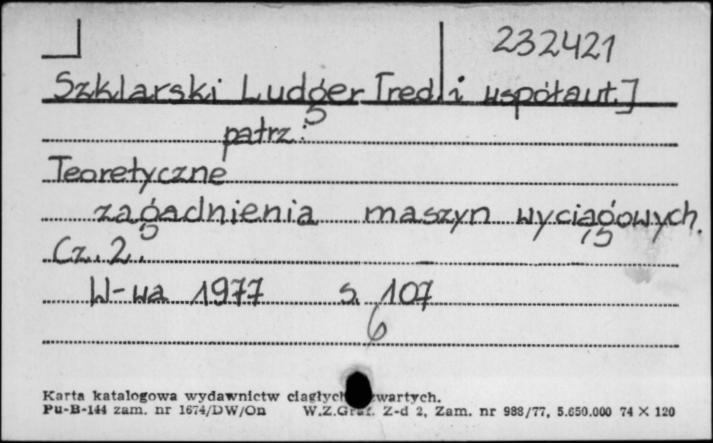 232421
Szklarski Ludger [red. i współaut.]
patrz:
Teoretyczne
zagadnienia maszyn wyciągowych.
Cz. 2.
W-wa 1977 s. 107
6
Karta katalogowa wydawnictw ciągłych zwartych.
Pu-B-144 zam. nr 1674/DW/On W.Z.Graf. Z-d 2, Zam. nr 988/77, 5.650.000 74 X 120